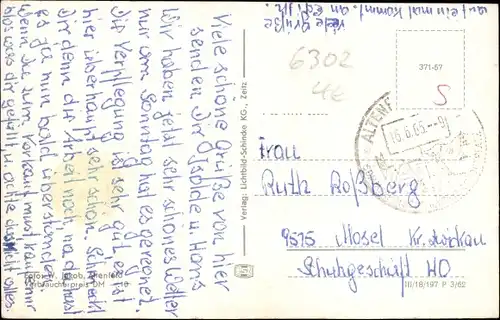 Viele schöne Grüße von hier
senden Dir Isolde u. Hans
Wir haben jetzt sehr schönes Wetter
nur am Sonntag hat es geregnet.
Die Verpflegung ist sehr gut es ist
hier überhaupt sehr schön. Schmeckt
Dir denn die Arbeit noch, na du hast
es ja nun bald überstanden.
Wenn Du zum Verkauf mußt, kauf mir
was der gefällt u. achte das nicht alles.
auf einmal kommt. an
viele Grüße
6302
371-67
S
ALTENF
16.6.65.--9
Frau
Ruth Roßberg
9575 Mosel Kr. Zwickau
Schuhgeschäft HO
III/18/197 P 3/62
Verlag: Lichtbild-Schincke KG., Zeitz
Verbraucherpreis DM